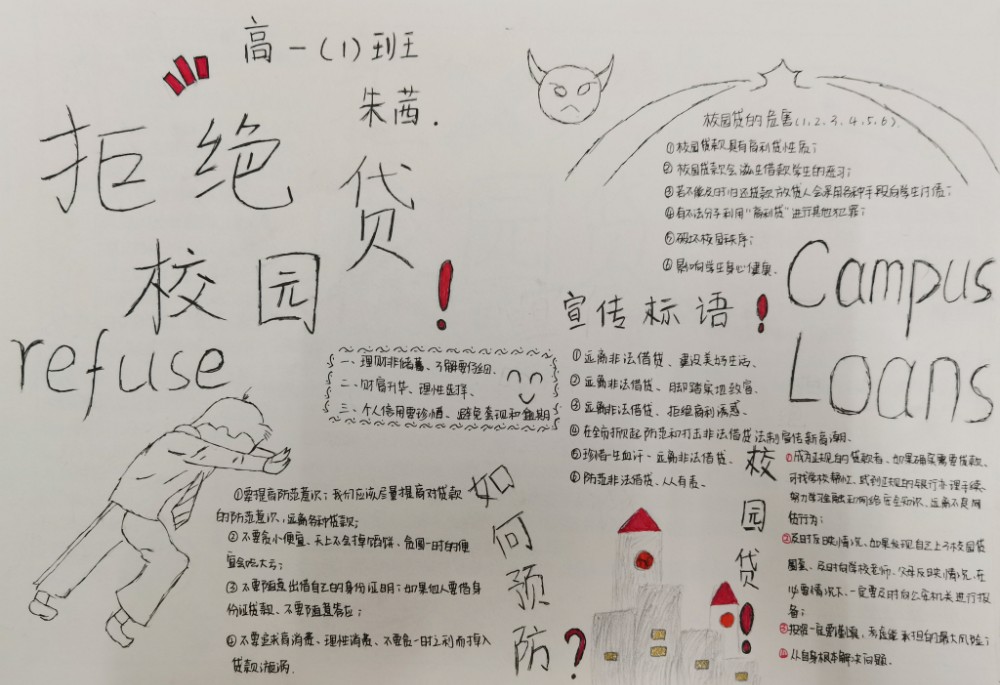 高一(1)班
朱茜.
拒绝
校园
贷!
refuse
一、理财非储蓄、了解要仔细.
二、财富升华、理性选择.
三、个人信用要珍惜、避免套现和逾期
①要提高防范意识:我们应该尽量提高对贷款
的防范意识,远离各种贷款;
②不要贪小便宜、天上不会掉馅饼、贪图一时的便
宜会吃大亏;
③不要随意出借自己的身份证明:如果他人要借身
份证贷款、不要随意答应;
④不要追求高消费、理性消费、不要贪一时之利而掉入
贷款漩涡.
如何预防?
校园贷的危害(1、2、3、4、5、6)
①校园贷款具有高利贷性质;
②校园贷款会滋生借款学生的恶习;
③若不能及时归还贷款放贷人会采用各种手段向学生讨债;
④有不法分子利用“高利贷”进行其他犯罪;
⑤破坏校园秩序;
⑥影响学生身心健康.
Campus
Loans
宣传标语!
①远离非法借贷、建设美好生活.
②远离非法借贷、脚踏实地致富.
③远离非法借贷、拒绝高利诱惑.
④在全市掀起防范和打击非法借贷法制宣传新高潮.
⑤珍惜一生血汗-远离非法借贷.
⑥防范非法借贷、从我.
校园贷!
①成为正规的贷款者、如果确实需要贷款、
可找学校帮忙、或到正规的银行办理手续、
努力学习金融和网络安全知识、远离不良网
贷行为;
②及时反映情况、如果发现自己上了校园贷
圈套、及时向学校老师、父母反映情况、在
必要情况下、一定要及时向公安机关进行报
备;
③投资一定要谨慎,考虑能承担的最大风险;
④从自身根本解决问题.